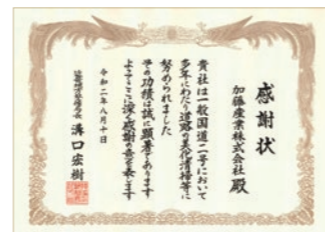 感謝状
加藤産業株式会社 殿
貴社は一般国道二号において
多年にわたり道路の美化清掃等に
努められました
その功績は誠に顕著であります
よってここに深く感謝の意を表します
令和二年八月十日
溝口宏樹